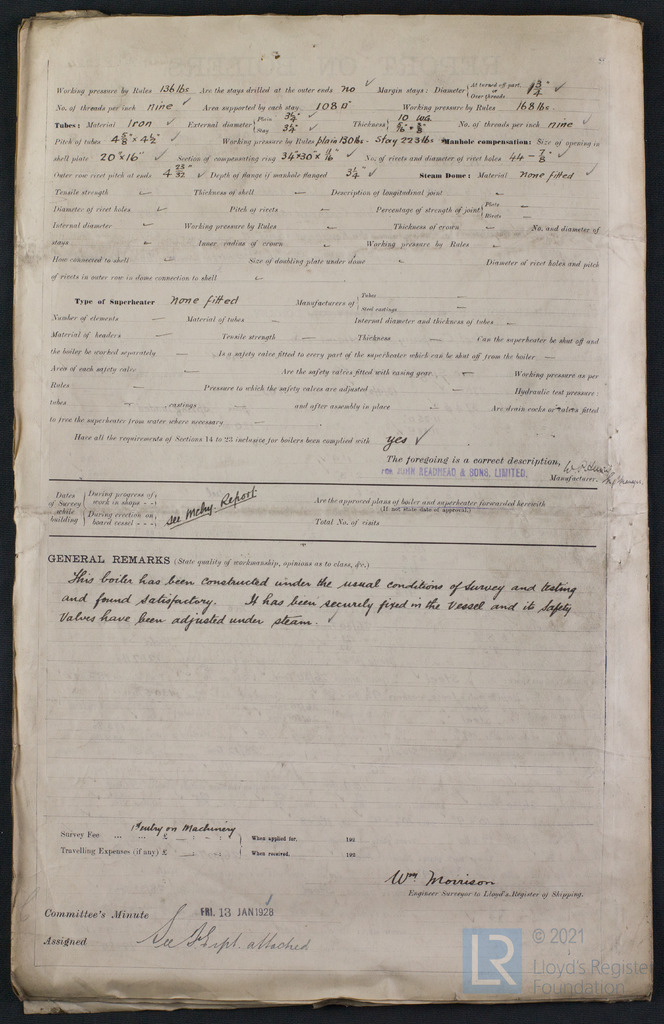 Working pressure by Rules 136 lbs Are the stays drilled at the outer ends no ✓ Margin stays: Diameter { At turned off part, or Over threads 1 3/4" ✓
No. of threads per inch nine ✓ Area supported by each stay 108 □" Working pressure by Rules 168 lbs.
Tubes: Material Iron ✓ External diameter { Plain 3 1/4" Stay 3 1/4" ✓ Thickness { 10 WG. 5/16" + 3/8" No. of threads per inch nine ✓
Pitch of tubes 4 5/8" x 4 1/2" ✓ Working pressure by Rules plain 130 lbs - Stay 223 lbs Manhole compensation: Size of opening in
shell plate 20" x 16" ✓ Section of compensating ring 34" x 30" x ✓ No. of rivets and diameter of rivet holes 44 - 7/8" ✓
Outer row rivet pitch at ends 4 23/32 ✓ Depth of flange if manhole flanged 3 1/4" ✓ Steam Dome: Material none fitted ✓
Tensile strength – Thickness of shell – Description of longitudinal joint –
Diameter of rivet holes – Pitch of rivets – Percentage of strength of joint { Plate – Rivets –
Internal diameter – Working pressure by Rules – Thickness of crown – No. and diameter of
stays – Inner radius of crown – Working pressure by Rules –
How connected to shell – Size of doubling plate under dome – Diameter of rivet holes and pitch
of rivets in outer row in dome connection to shell –
Type of Superheater none fitted Manufacturers of { Tubes – Steel castings –
Number of elements – Material of tubes – Internal diameter and thickness of tubes –
Material of headers – Tensile strength – Thickness – Can the superheater be shut off and
the boiler be worked separately – Is a safety valve fitted to every part of the superheater which can be shut off from the boiler –
Area of each safety valve – Are the safety valves fitted with easing gear – Working pressure as per
Rules – Pressure to which the safety valves are adjusted – Hydraulic test pressure:
tubes – castings – and after assembly in place – Are drain cocks or valves fitted
to free the superheater from water where necessary –
Have all the requirements of Sections 14 to 23 inclusive for boilers been complied with yes ✓
The foregoing is a correct description,
FOR JOHN READHEAD & SONS, LIMITED.
Manufacturer.
Dates of Survey while building { During progress of work in shops - - During erection on board vessel - - - See Mchy. Report
Are the approved plans of boiler and superheater forwarded herewith
(If not state date of approval.)
Total No. of visits
GENERAL REMARKS (State quality of workmanship, opinions as to class, &c.)
This boiler has been constructed under the usual conditions of Survey and testing
and found satisfactory. It has been securely fixed in the vessel and its Safety
Valves have been adjusted under steam.
Survey Fee ... ... £ 1st entry on Machinery When applied for, 192
Travelling Expenses (if any) £ : : When received, 192
Wm Morrison
Engineer Surveyor to Lloyd's Register of Shipping.
Committee's Minute FRI. 13 JAN 1928
Assigned See attached
LR © 2021
Lloyd's Register
Foundation